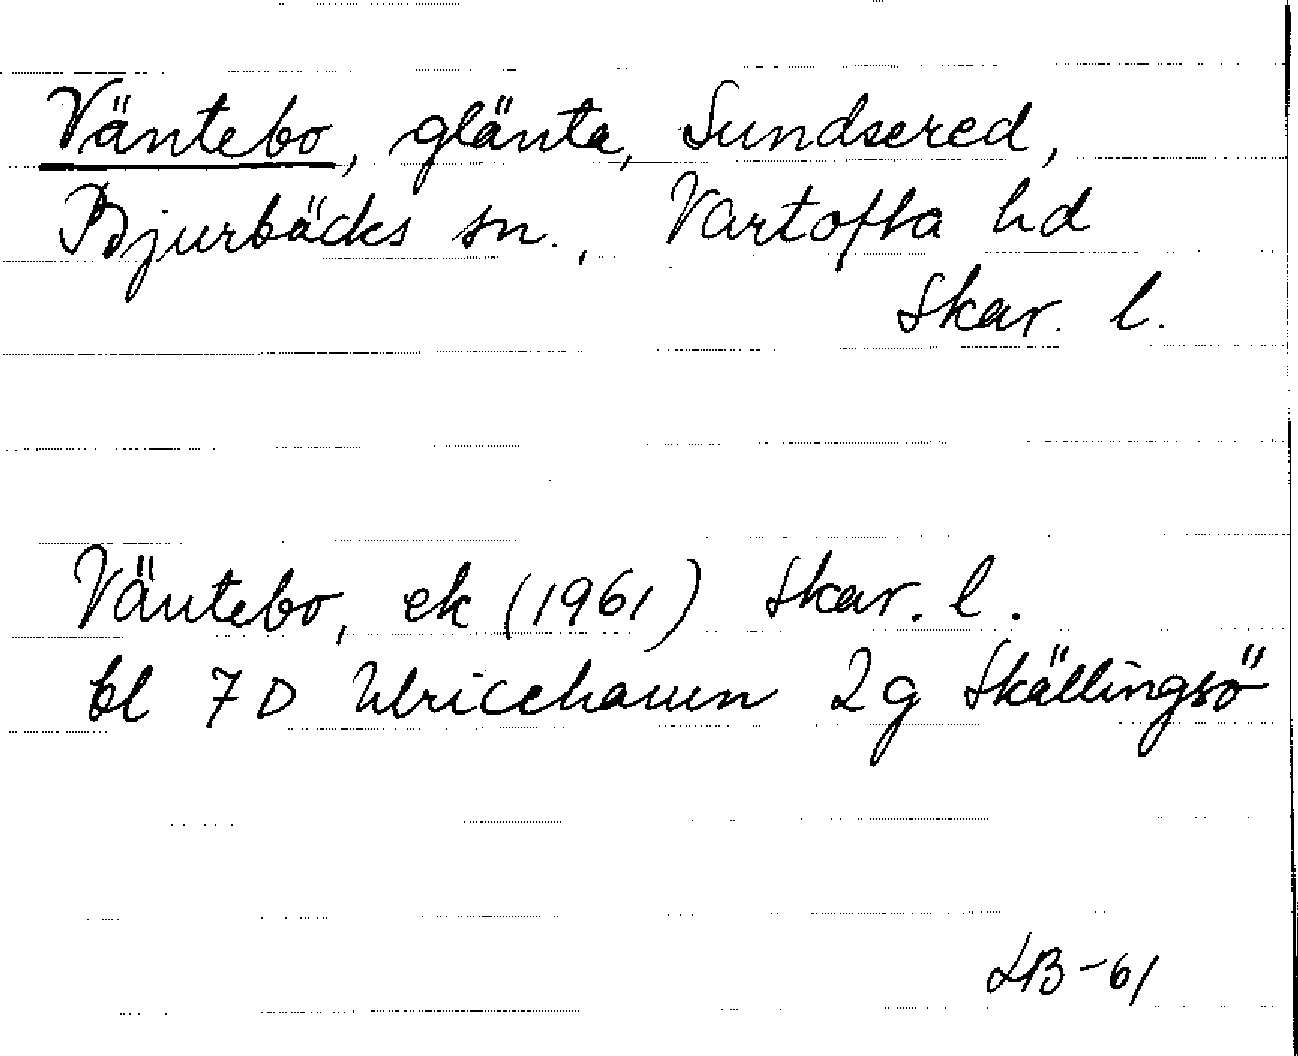 Väntebo, glänta, Sundsered,
Bjurbäcks sn., Vartofta hd
Skar. l.
Väntebo, ek (1961) Skar. l.
bl 7D Ulricehamn 2g Skällingsö
LB-61